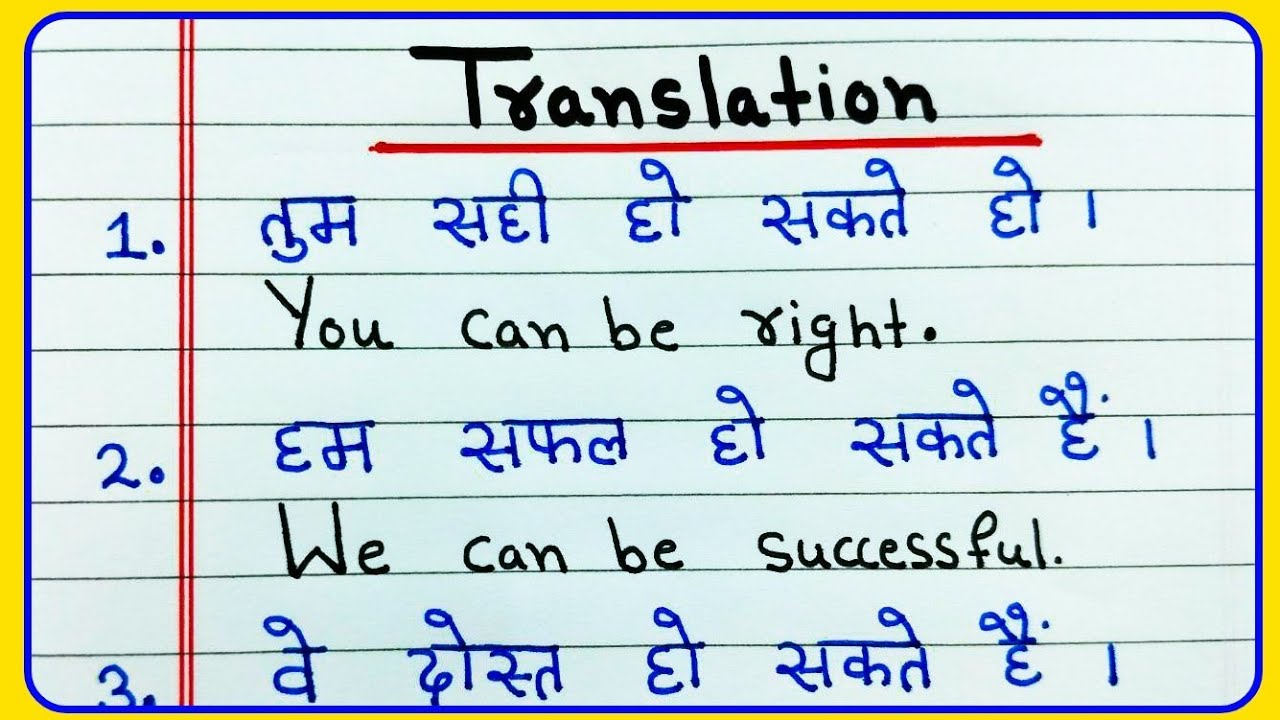 Translation
1. तुम सही हो सकते हो।
You can be right.
2. हम सफल हो सकते हैं।
We can be successful.
3. वे दोस्त हो सकते हैं।